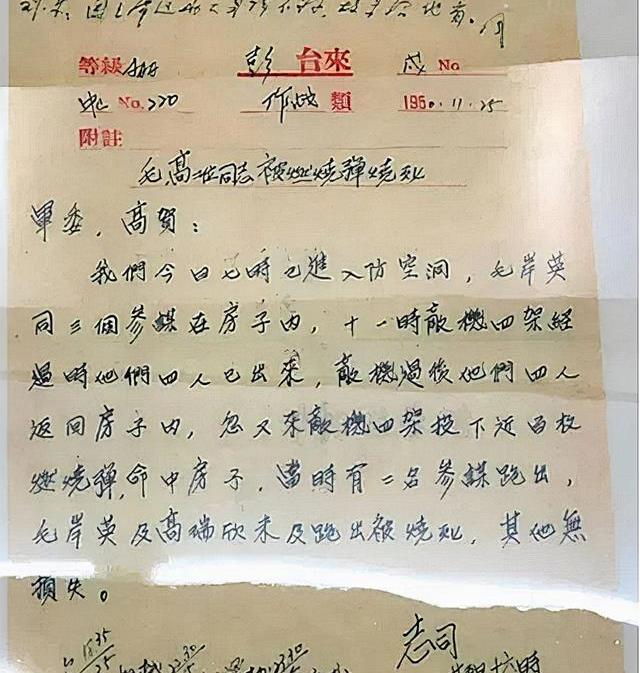 等級 彭 台來 戌 No
No. 220 作战 類 1950.11.25
附註
毛、高二同志被燃燒彈燒死
軍委，高賀：
我們今日七時已進入防空洞，毛岸英
同三個參謀在房子內，十一時敵機四架經
過時他們四人已出來，敵機過後他們四人
返回房子內，忽又來敵機四架投下近百枚
燃燒彈，命中房子，當時有二名參謀跑出，
毛岸英及高瑞欣未及跑出被燒死，其他無
損失。
志司